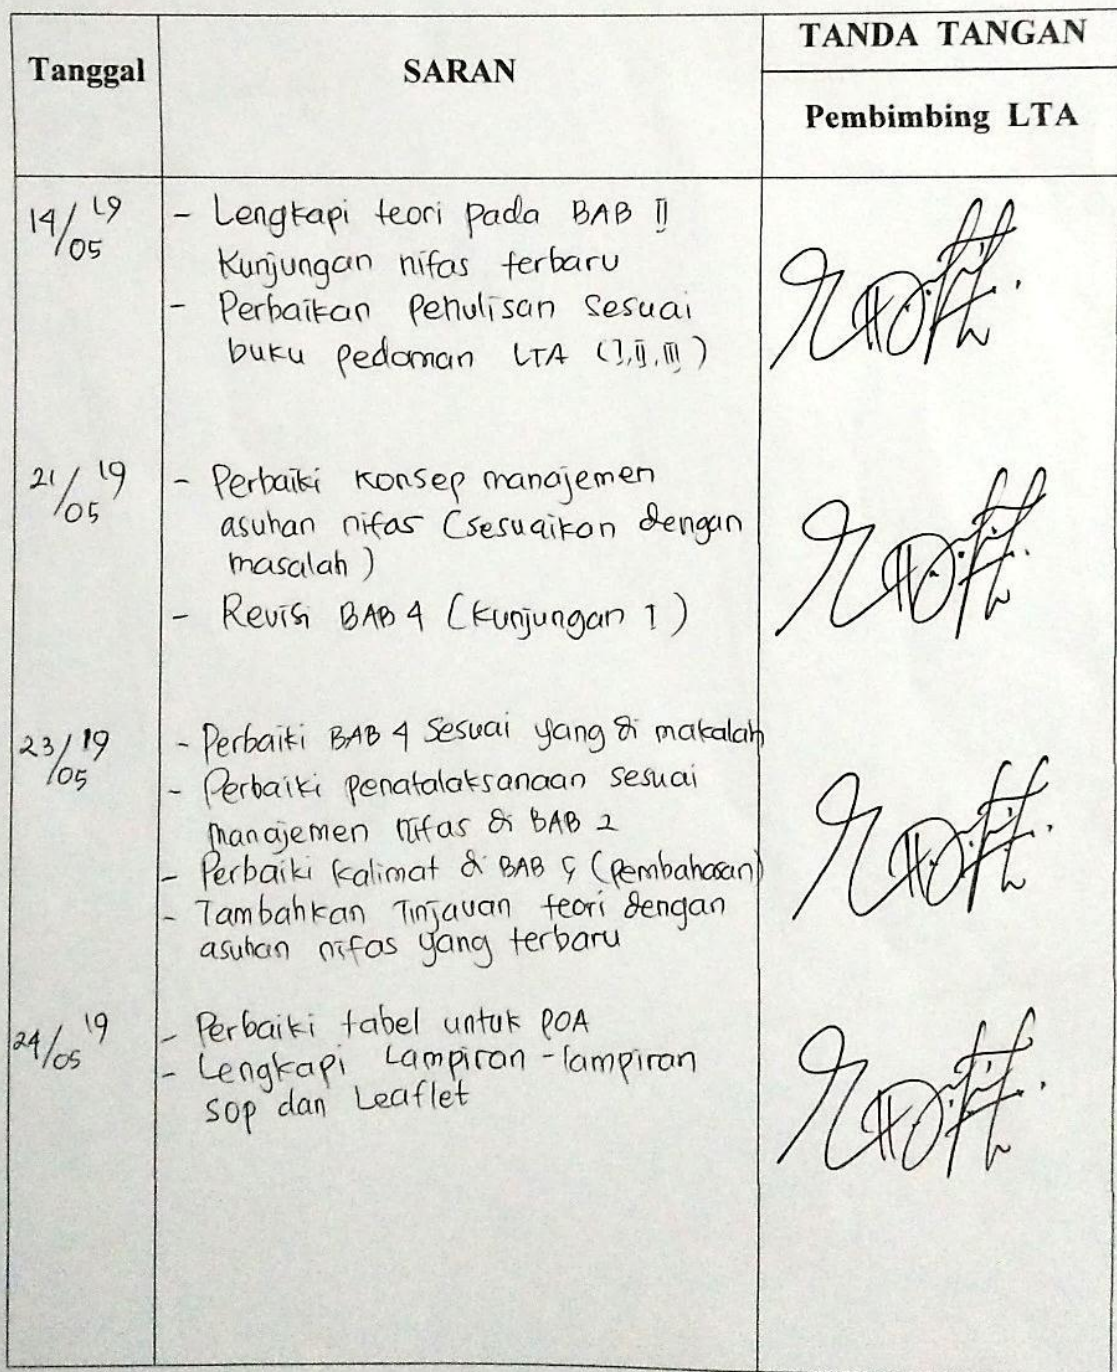 Tanggal
SARAN
TANDA TANGAN
Pembimbing LTA
14/05 19
- Lengkapi teori pada BAB II
Kunjungan nifas terbaru
- Perbaikan Penulisan Sesuai
buku pedoman LTA (I,II,III)
21/05 19
- Perbaiki konsep manajemen
asuhan nifas (sesuaikan dengan
masalah)
- Revisi BAB 4 (Kunjungan 1)
23/05 19
- Perbaiki BAB 4 Sesuai yang di makalah
- Perbaiki penatalaksanaan sesuai
manajemen nifas di BAB 2
- Perbaiki kalimat di BAB 5 (Pembahasan)
- Tambahkan Tinjauan teori dengan
asuhan nifas yang terbaru
24/05 19
- Perbaiki tabel untuk POA
- Lengkapi Lampiran-lampiran
SOP dan Leaflet